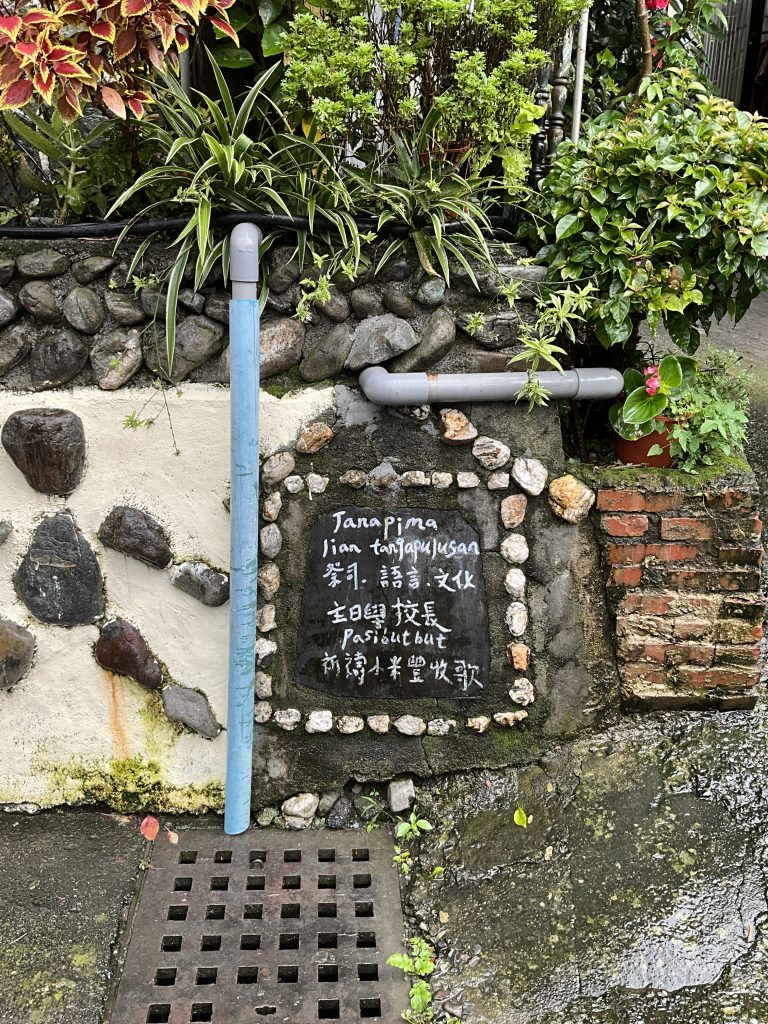 Tanapima
lian tanγapulusan
祭司. 語言. 文化
主日學 校長
Pasibutbut
祈禱小米豐收歌